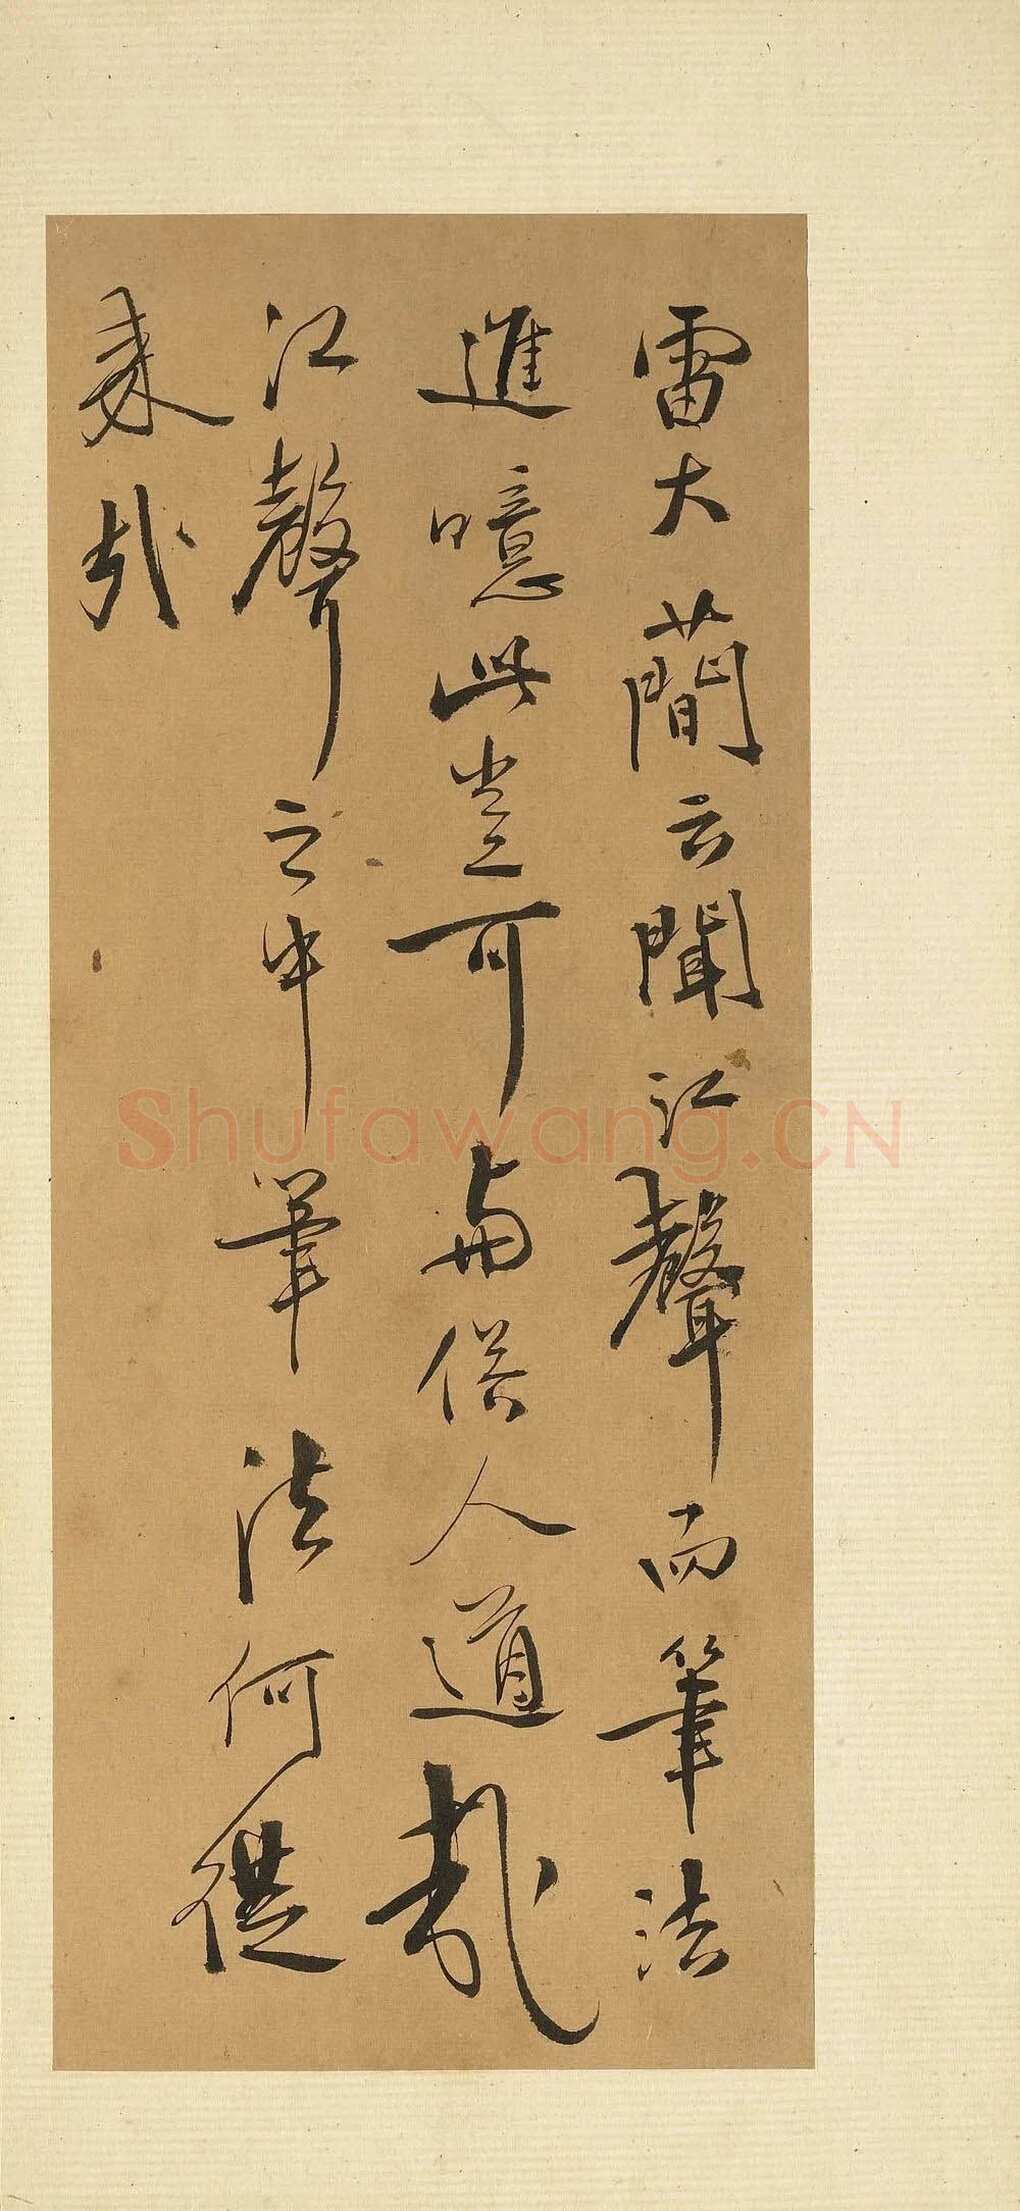 雷大蕳云聞江聲而筆法
進噫此豈可與俗人道哉
江聲之中筆法何從
來哉
Shufawang.CN